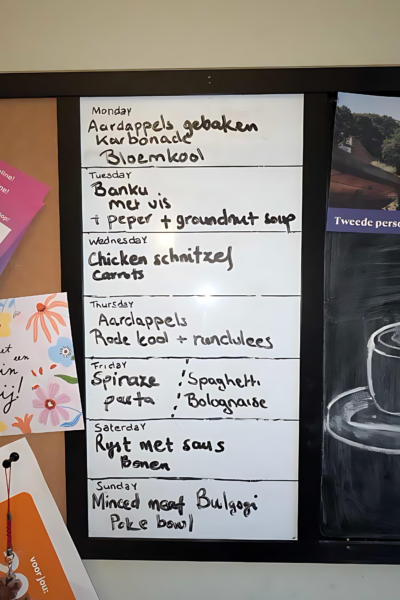 Monday
Aardappels gebaken
Karbonade
Bloemkool
Tuesday
Banku
met vis
+ peper + groundnut soup
Wednesday
Chicken schnitzel
Carrots
Thursday
Aardappels
Rode kool + rundvlees
Friday
Spinaze
pasta
Spaghetti
Bolognaise
Saterday
Ryst met saus
Bonen
Sunday
Minced meat Bulgogi
Poke bowl
Tweede perso
een
in
ij!
voor jou: